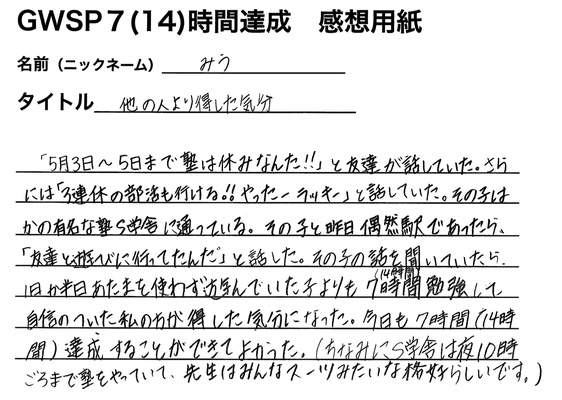 GWSP7(14)時間達成 感想用紙
名前(ニックネーム) みう
タイトル 他の人より得した気分
「5月3日〜5日まで塾は休みなんだ!!」と友達が話していた。さら
には「3連休の部活も行ける!!やったーラッキー」と話していた。その子は
かの有名な塾S学舎に通っている。その子と昨日偶然駅であったら、
「友達と遊びに行ってたんだ」と話した。その子の話を聞いていたら、
1日か半日あたまを使わず遊んでいた子よりも7時間(14時間)勉強して
自信のついた私の方が得した気分になった。今日も7時間(14時
間)達成することができてよかった。(ちなみにS学舎は夜10時
ごろまで塾をやっていて、先生はみんなスーツみたいな格好らしいです。)